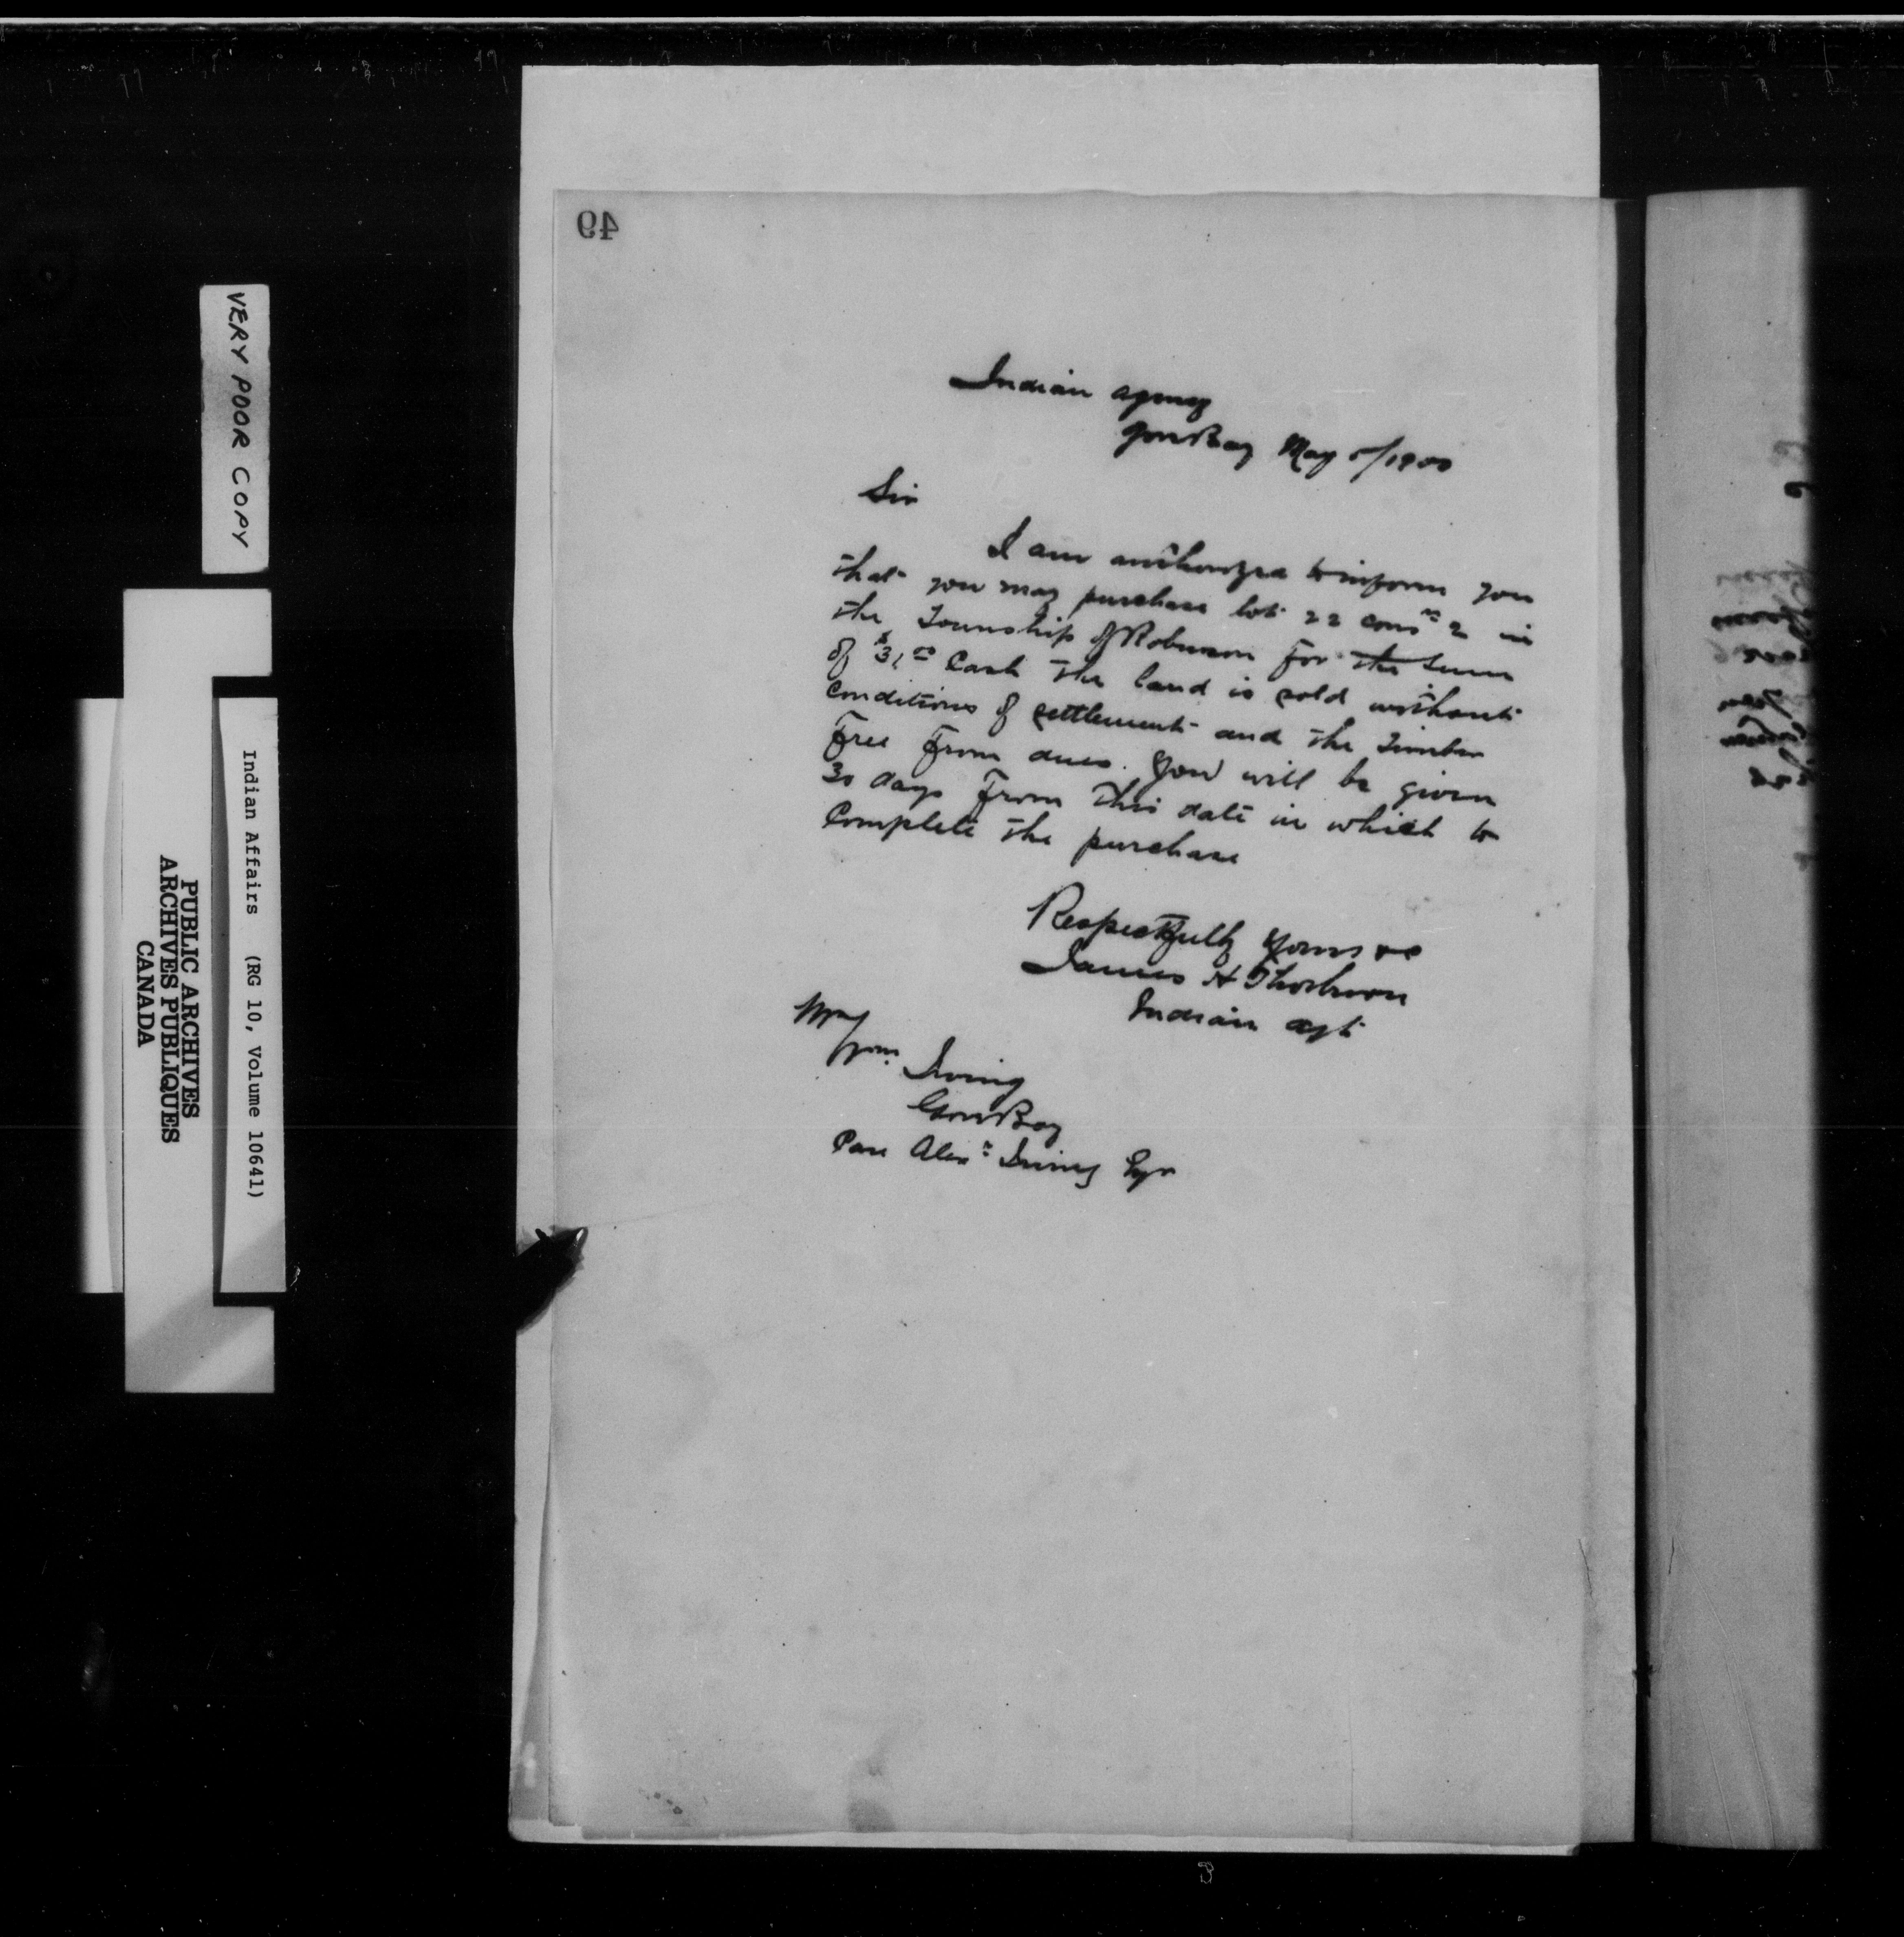 49
Indian agency
Gore Bay May 5/1900
Sir
I am authorized to inform you
that you may purchase lot 22 consn 2 in
the Township of Robinson for the sum
of $31.00 Cash the land is sold without
conditions of settlement and the timber
free from dues. You will be given
30 days from this date in which to
complete the purchase
Respectfully yours &c
James H Thorburn
Indian agt
Wm Irving
Gore Bay
Care Alexr Irving Esqr
VERY POOR COPY
Indian Affairs (RG 10, Volume 10641)
PUBLIC ARCHIVES
ARCHIVES PUBLIQUES
CANADA